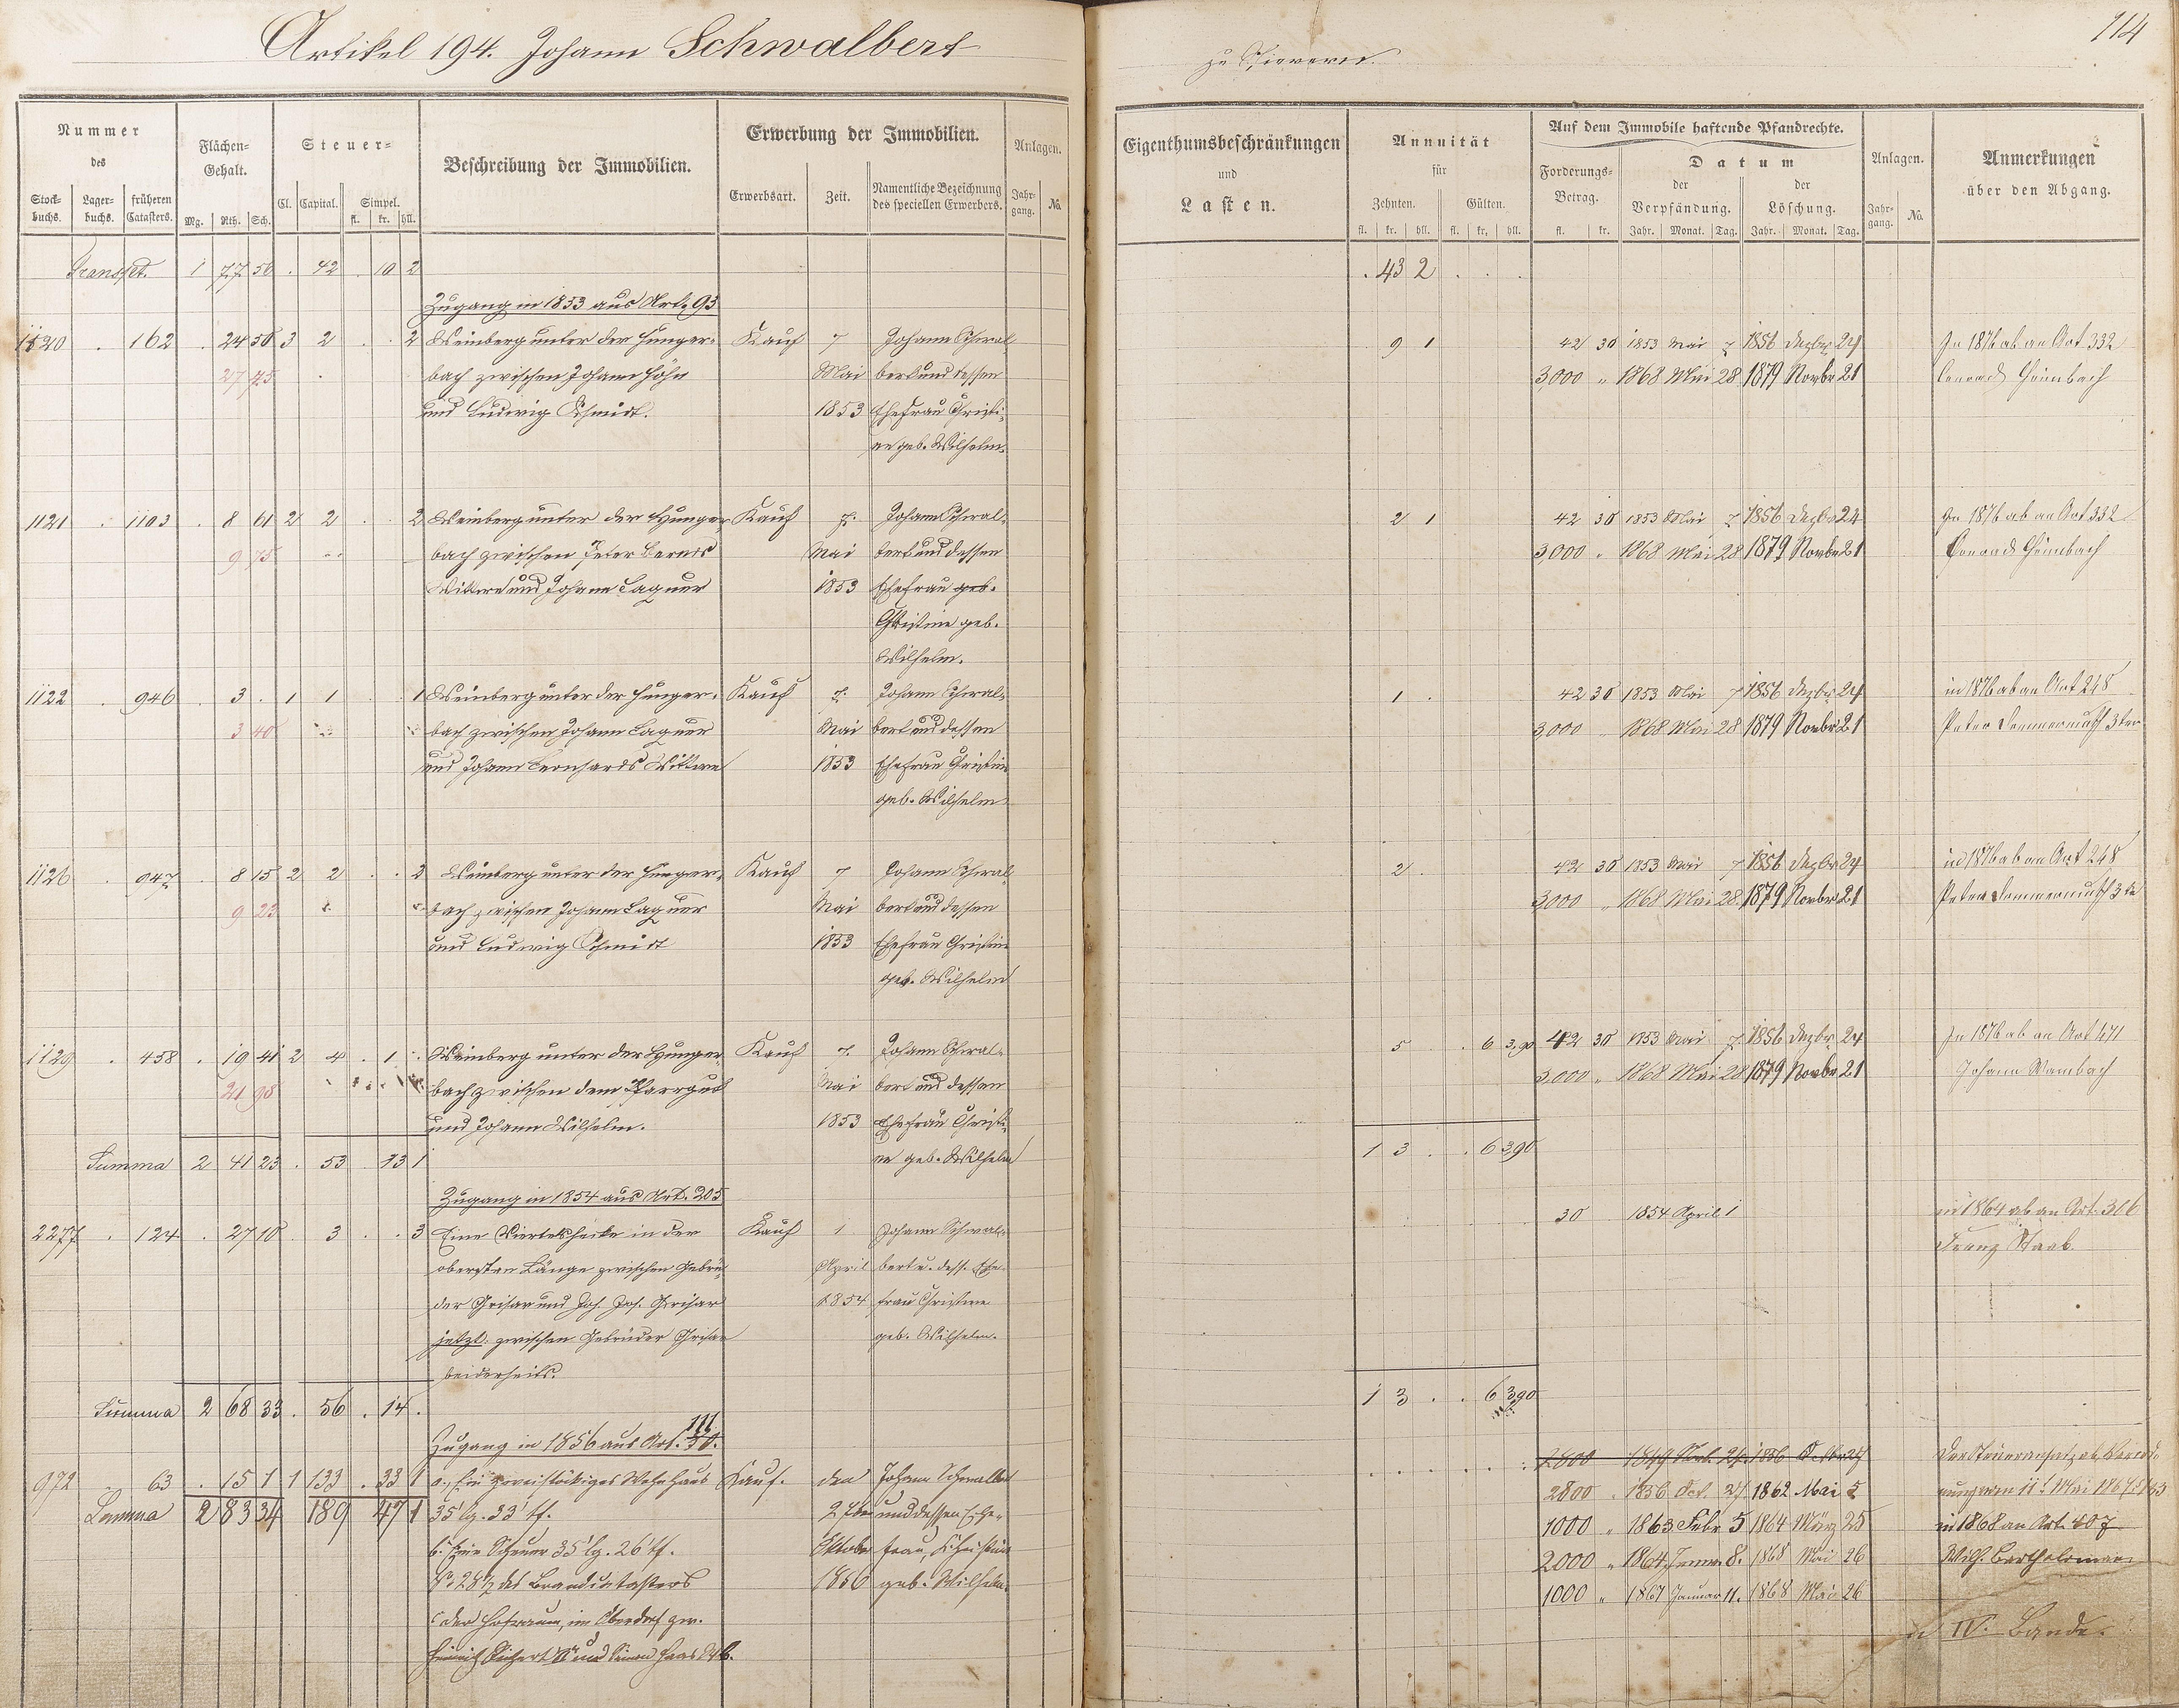 Artikel 194. Johann Schwalbert
zu
114
Nummer des
Stock-buchs. Lager-buchs. früheren Catasters.
Flächen-Gehalt.
Mg. Rth. Sch.
Steuer-
Cl. Capital. Simpel. fl. kr. hll.
Beschreibung der Immobilien.
Erwerbung der Immobilien.
Erwerbsart. Zeit. Namentliche Bezeichnung des speciellen Erwerbers.
Anlagen.
Jahr-gang. No.
Eigenthumsbeschränkungen und Lasten.
Annuität für
Zehnten. Gülten.
fl. kr. hll. fl. kr. hll.
Auf dem Immobile haftende Pfandrechte.
Forderungs-Betrag. fl. kr.
Datum
der Verpfändung. der Löschung.
Jahr. Monat. Tag. Jahr. Monat. Tag.
Anlagen.
Jahr-gang. No.
Anmerkungen über den Abgang.
Transpt. 1 77 56 . 42 . 10 2 . 43 2 . . .
Zugang in 1853 aus Art. 93
1120 . 162 . 24 50 3 2 . . 2 Weinberg unter der Hunger- Kauf 7 Johann Schwal 9 1 42 30 1853 Mai 7 1856 Dezbr 24 In 1876 ab an Art 332
27 75 bach zwischen Johann Höhn Mai bert und dessen 3000 " 1868 Mai 28 1879 Novbr 21 Conrad
und Ludwig Schmidt. 1853 Ehefrau Christi-
ne geb. Wilhelm.
1121 . 1103 . 8 61 2 2 . . 2 Weinberg unter der Hunger Kauf 7. Johann Schwal- 2 1 42 30 1853 Mai 7 1856 Dezbr 24 In 1876 ab an Art 332
9 75 bach zwischen Peter Mai bert und dessen 3,000 " 1868 Mai 28 1879 Novbr 21 Conrad
Wittwe und Johann Laquer 1853 Ehefrau geb.
Christine geb.
Wilhelm.
1122 . 946 . 3 . 1 1 . . 1 Weinberg unter der Hunger- Kauf 7. Johann Schwal- 1 . 42 30 1853 Mai 7 1856 Dezbr 24 in 1876 ab an Art 248
3 40 bach zwischen Johann Laquer Mai bert und dessen 3,000 " 1868 Mai 28 1879 Novbr 21 Peter 3ter
und Johann Leonhards Wittwe 1853 Ehefrau Christine
geb. Wilhelm
1126 . 947 . 8 15 2 2 . . 2 Weinberg unter der Hunger- Kauf 7 Johann Schwal- 2 . 42 30 1853 Mai 7 1856 Dezbr 24 in 1876 ab an Art 248
9 23 bach zwischen Johann Laquer Mai bert und dessen 3,000 " 1868 Mai 28 1879 Novbr 21 Peter
und Ludwig Schmidt 1853 Ehefrau Christine
geb. Wilhelm
1129 . 458 . 19 41 2 4 . 1 . Weinberg unter der Hunger- Kauf 7. Johann Schwal- 5 . . 6 390 42 30 1853 Mai 7 1856 Dezbr 24 In 1876 ab an Art 471
21 98 bach zwischen dem Pfarrgut Mai bert und dessen 3,000 " 1868 Mai 28 1879 Novbr 21 Johann Wambach
und Johann Wilhelm. 1853 Ehefrau Christi-
Summa 2 41 23 . 53 . 13 1 ne geb. Wilhelm 1 3 . . 6 390
Zugang in 1854 aus Art. 205
2277 . 124 . 27 10 . 3 . . 3 Eine Viertelshecke in der Kauf 1 Johann Schwal- 30 1854 April 1 in 1864 ab an Art. 306
obersten Länge zwischen Gebrü- April bert u. dess. Ehe- Franz Staab
der Grisar und Joh. Jos. Grisar 1854 frau Christine
jetzt: zwischen Gebrüder Grisar geb. Wilhelm.
beiderseits.
Summa 2 68 33 . 56 . 14 . 1 3 . . 6 390
Zugang in 1856 aus Art. 111 30.
972 " 63 . 15 1 1 133 . 33 1 a., Ein zweistöckiges Wohnhaus Kauf. den Johann Schwalbert 2800 1849 24. 1856
Summa 2 83 34 189 47 1 35' lg. 33' tf. 27ten und dessen Ehe- 2800 . 1856 Oct. 27 1862 Mai 5
b. Eine Scheuer 35' lg. 26' tf. Oktober frau, Christine 1000 " 1863 Febr 5 1864 März 25 in 1868 an Art. 407
No. 287 des Brandcatasters 1856 geb. Wilhelm. 2000 " 1864 Januar 8. 1868 Mai 26 Wilh. Bartholomae
c der Hofraum, im Oberdorf zw. 1000 " 1867 Januar 11. 1868 Mai 26
Heinrich und Simon Haas
IV. Bande.